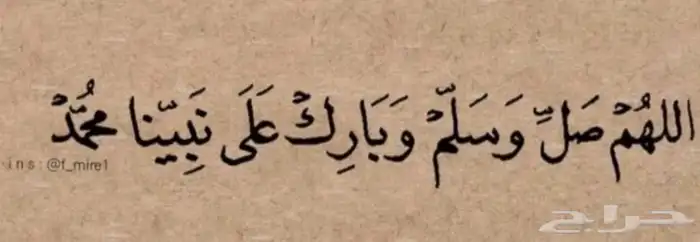 اللهُمْ صَلِّ وَسَلّمْ وَبَارِكْ عَلَى نَبِيّنا محُمّدْ
ins: @f_mire1
حراج